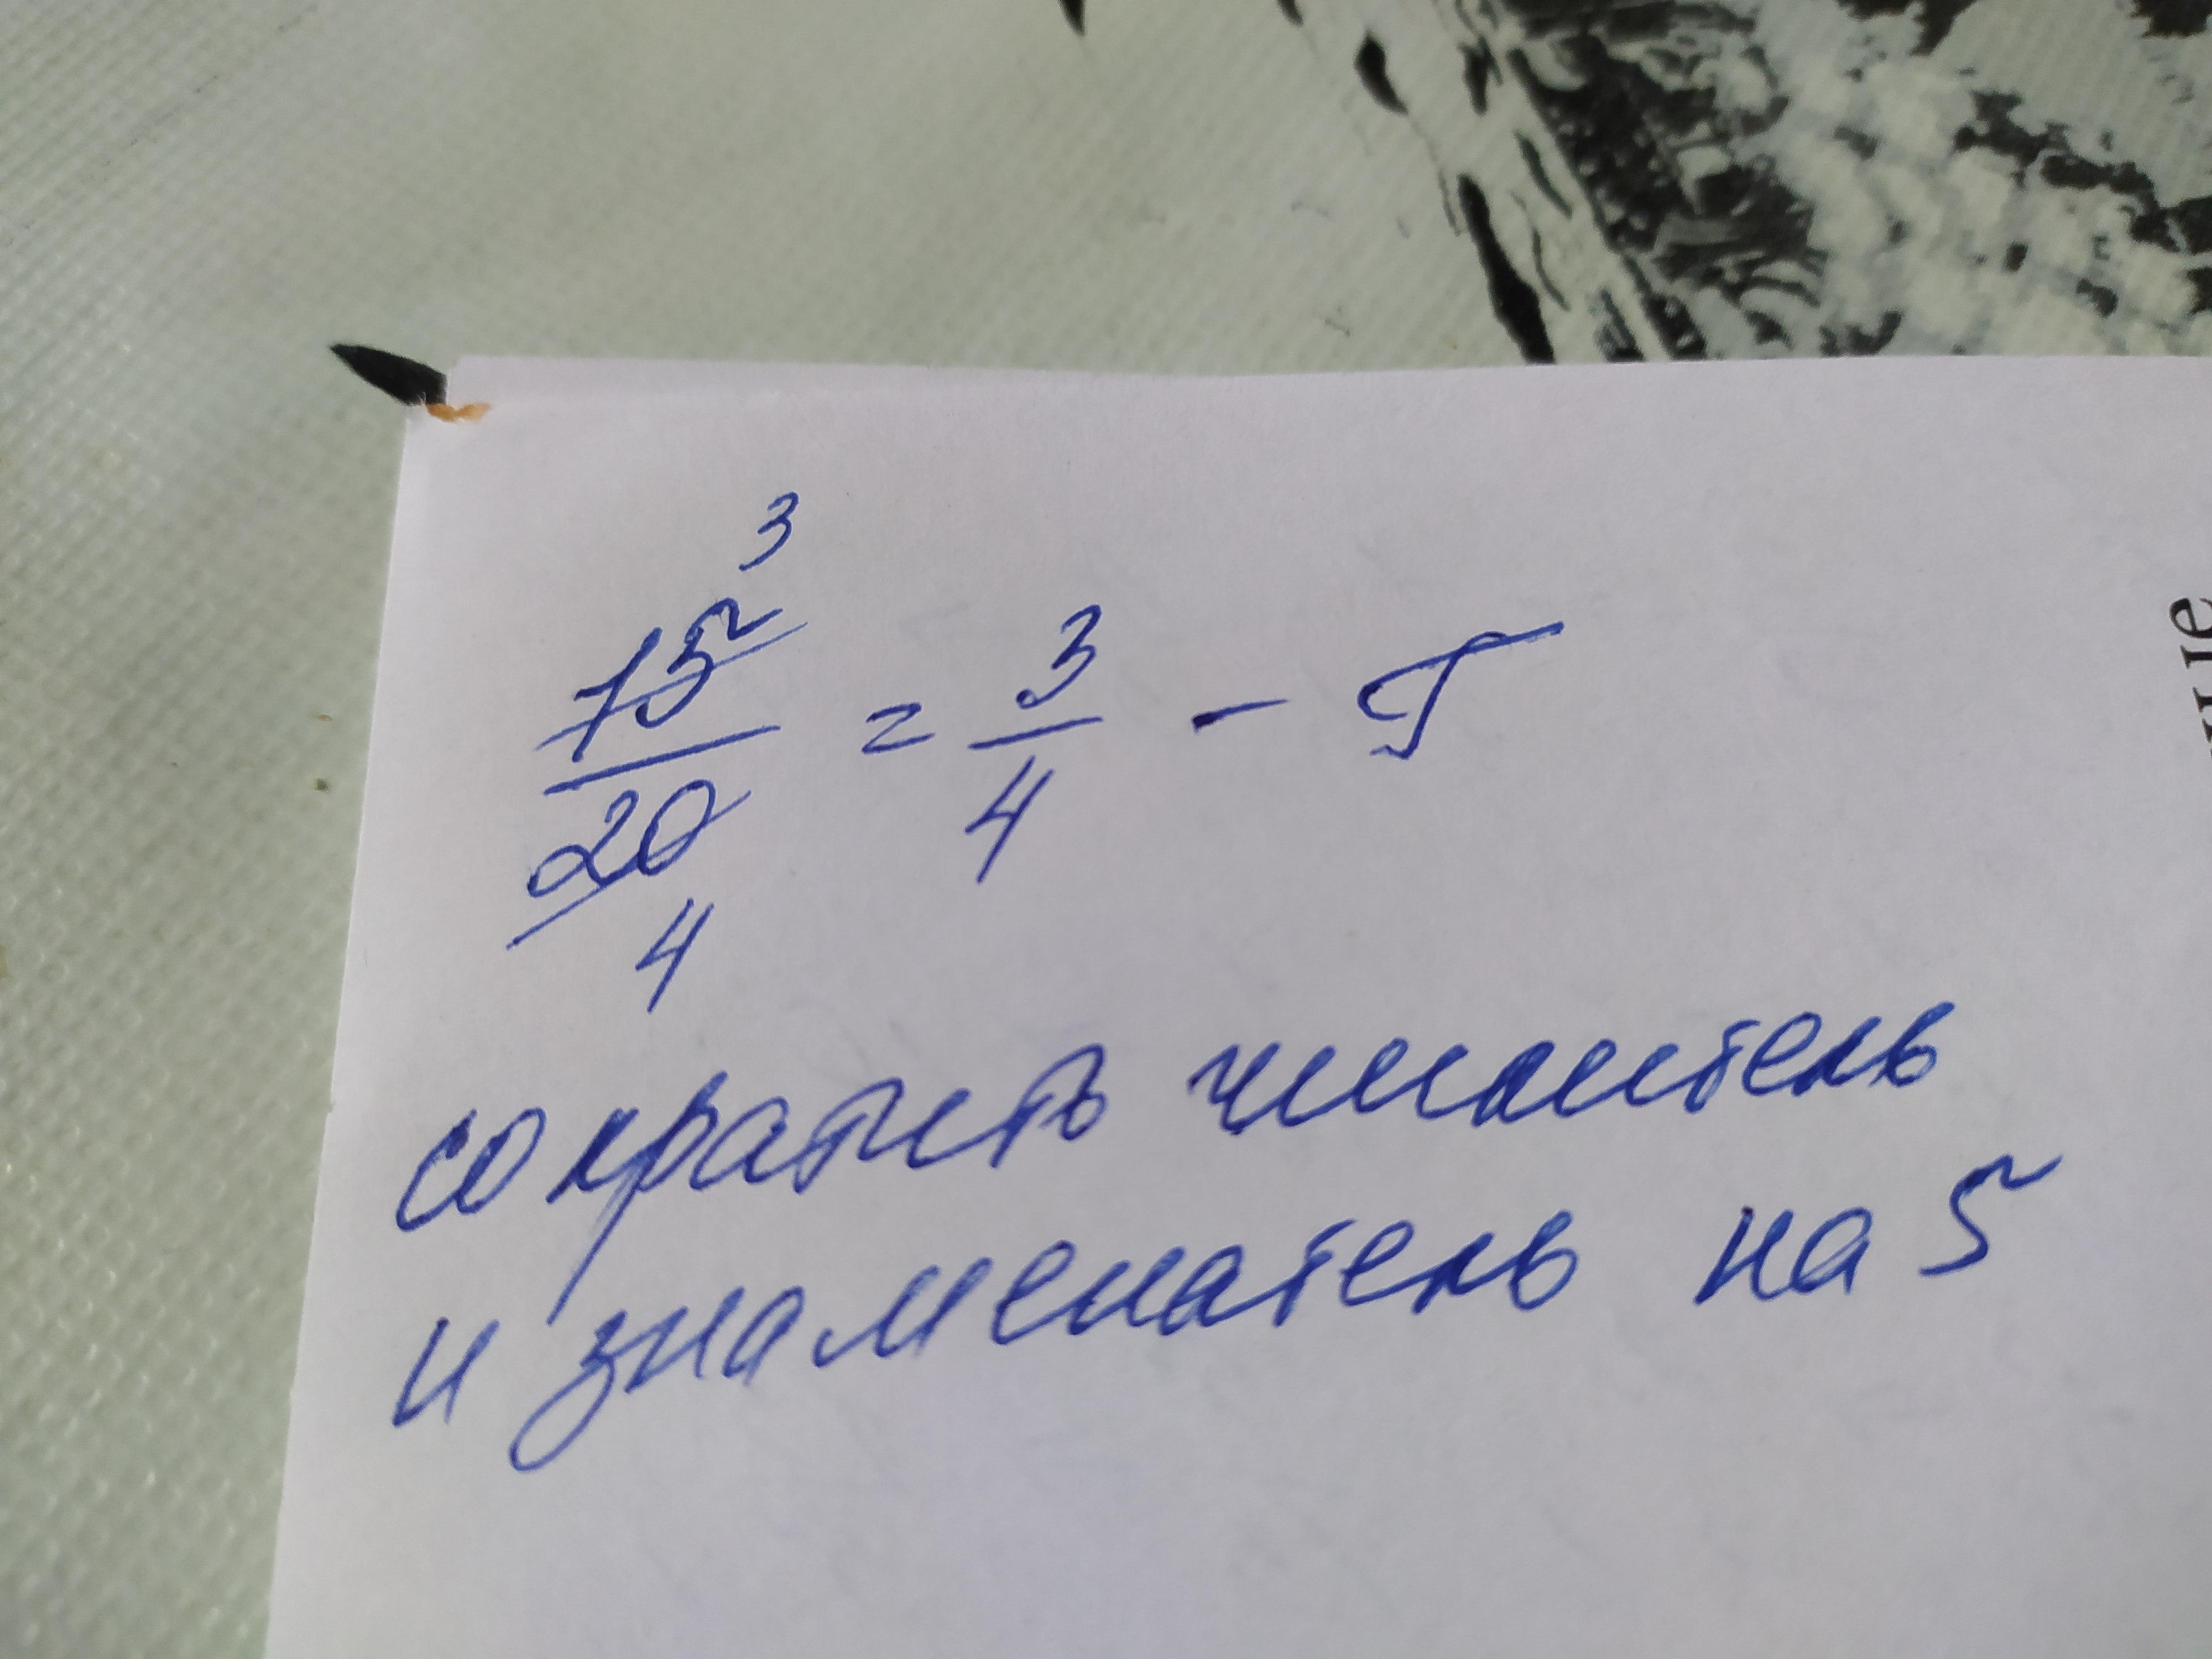 3
15/20 = 3/4 - Т
4
сократить числитель
и знаменатель на 5